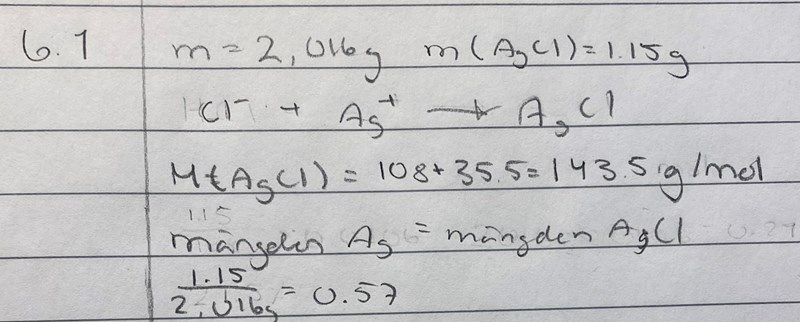 6.1 m = 2,016g m(AgCl) = 1.15g
Cl⁻ + Ag⁺ → AgCl
M(AgCl) = 108+35.5=143.5 g/mol
1.15
mängden Ag = mängden AgCl
1.15
2,016g = 0.57